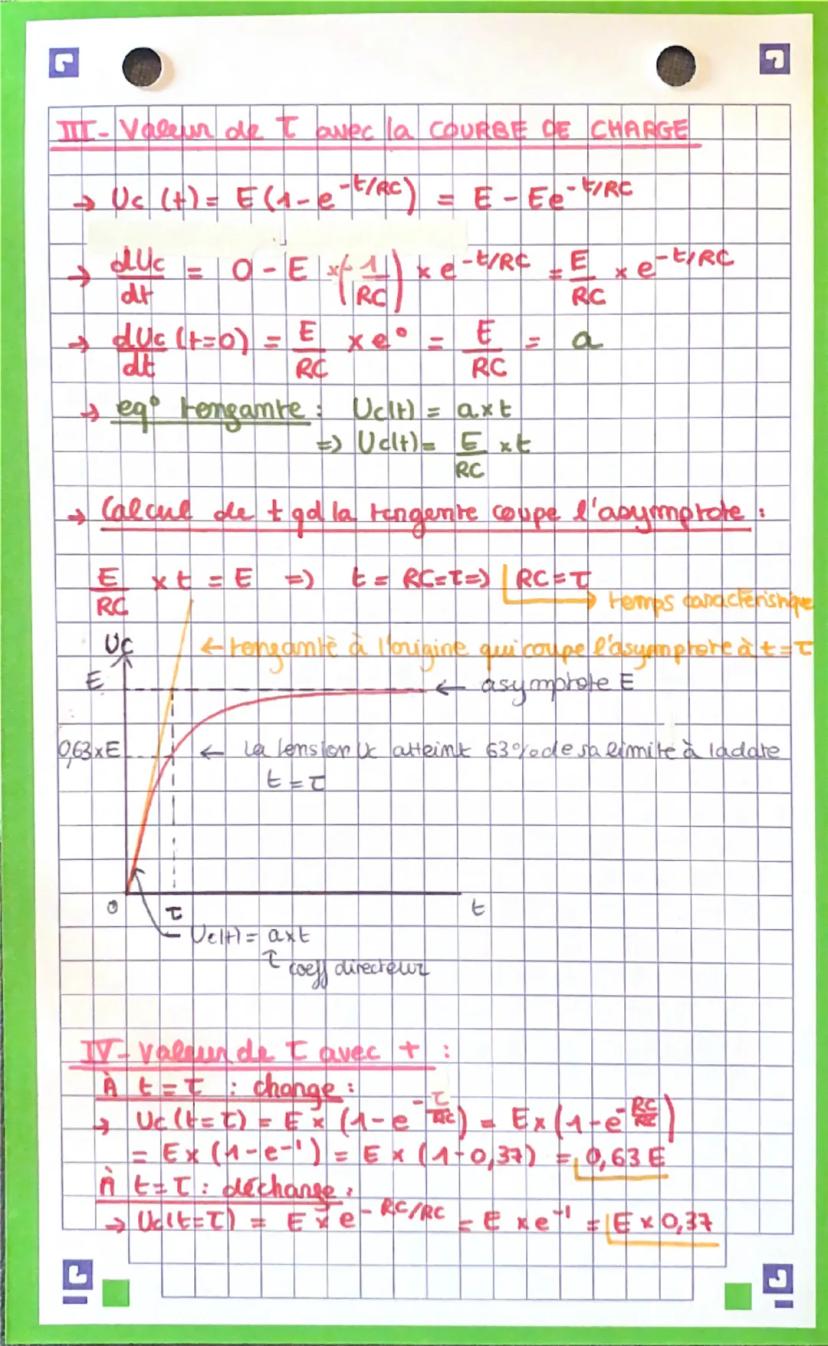 III - Valeur de τ avec la COURBE DE CHARGE
→ Uc (t) = E (1 - e^-t/RC) = E - Ee^-t/RC
→ dUc/dt = 0 - E × (-1/RC) × e^-t/RC = E/RC × e^-t/RC
→ dUc/dt (t=0) = E/RC × e° = E/RC = a
→ eq° tengante : Uc(t) = a×t
=> Uc(t) = E/RC × t
→ Calcul de t qd la tengente coupe l'asymptote :
E/RC × t = E => t = RC = τ => RC = τ
→ temps caractéristique
Uc
← tengante à l'origine qui coupe l'asymptote à t = τ
E ← asymptote E
0,63×E ← La tension Uc atteint 63% de sa limite à la date
t = τ
0 τ t
Uc(t) = a×t
↑ coeff directeur
IV - Valeur de τ avec t :
À t = τ : charge :
→ Uc (t = τ) = E × (1 - e^-τ/RC) = E × (1 - e^-RC/RC)
= E × (1 - e^-1) = E × (1 - 0,37) = 0,63 E
À t = τ : décharge :
→ Uc(t = τ) = E × e^-RC/RC = E × e^-1 = E × 0,37